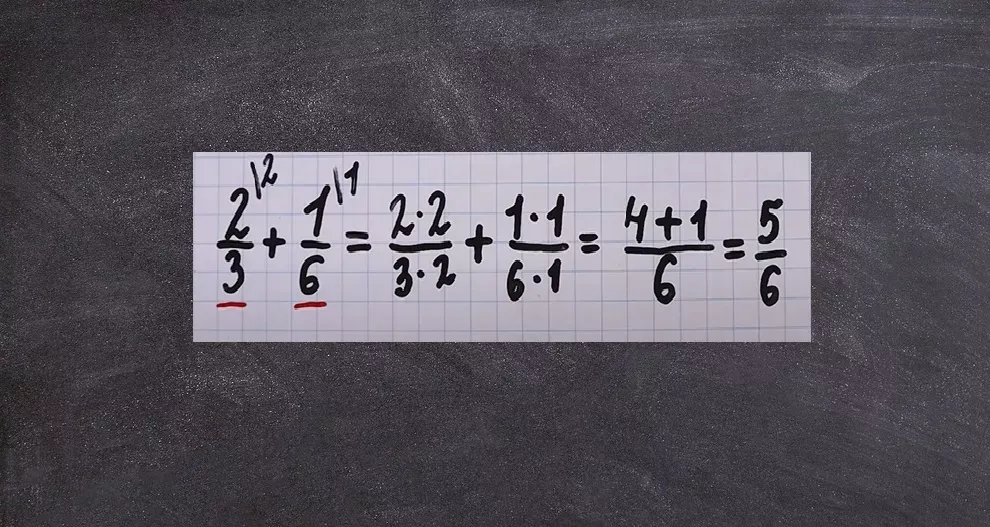 2/3 \2 + 1/6 \1 = 2·2/3·2 + 1·1/6·1 = 4+1/6 = 5/6